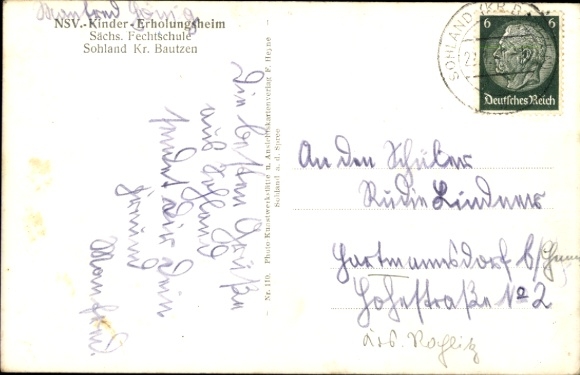 Manfred König
NSV.-Kinder-Erholungsheim
Sächs. Fechtschule
Sohland Kr. Bautzen
Die besten Grüße
aus Sohland
sendet Dir Dein
Freund
Manfred
Nr. 110. Photo Kunstwerkstätte u. Ansichtskartenverlag F. Heyne
Sohland a. d. Spree
SOHLAND (KR. B
6 6
Deutsches Reich
An den Schüler
Rudie Lindner
Hartmannsdorf b/Chemn
Hohestraße No 2